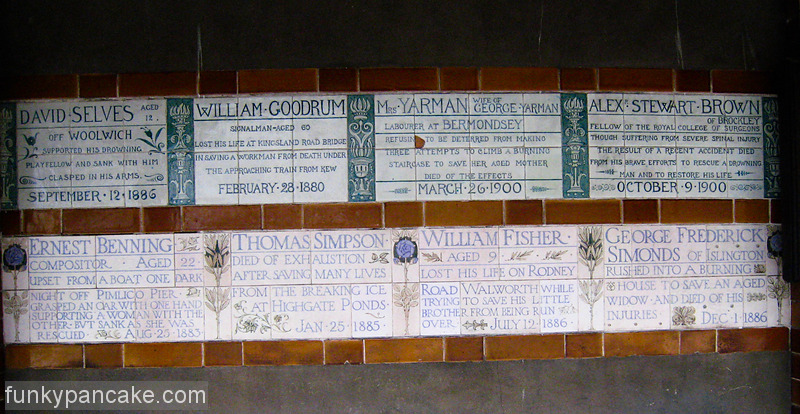 DAVID SELVES AGED 12.
OFF WOOLWICH
SUPPORTED HIS DROWNING
PLAYFELLOW AND SANK WITH HIM
CLASPED IN HIS ARMS.
SEPTEMBER · 12 · 1886
WILLIAM · GOODRUM
SIGNALMAN · AGED 60
LOST HIS LIFE AT KINGSLAND ROAD BRIDGE
IN SAVING A WORKMAN FROM DEATH UNDER
THE APPROACHING TRAIN FROM KEW
FEBRUARY · 28 · 1880
MRS · YARMAN WIFE OF GEORGE · YARMAN
LABOURER AT BERMONDSEY
REFUSING TO BE DETERRED FROM MAKING
THREE ATTEMPTS TO CLIMB A BURNING
STAIRCASE TO SAVE HER AGED MOTHER
DIED OF THE EFFECTS
MARCH · 26 · 1900
ALEXR · STEWART · BROWN
OF BROCKLEY
FELLOW OF THE ROYAL COLLEGE OF SURGEONS
THOUGH SUFFERING FROM SEVERE SPINAL INJURY
THE RESULT OF A RECENT ACCIDENT DIED
FROM HIS BRAVE EFFORTS TO RESCUE A DROWNING
MAN AND TO RESTORE HIS LIFE
OCTOBER · 9 · 1900
ERNEST BENNING
COMPOSITOR AGED 22
UPSET FROM A BOAT ONE DARK
NIGHT OFF PIMLICO PIER
GRASPED AN OAR WITH ONE HAND
SUPPORTING A WOMAN WITH THE
OTHER · BUT SANK AS SHE WAS
RESCUED. AUG · 25 · 1883
THOMAS SIMPSON
DIED OF EXHAUSTION
AFTER SAVING MANY LIVES
FROM THE BREAKING ICE
AT HIGHGATE PONDS.
JAN · 25 · 1885
WILLIAM FISHER
AGED 9
LOST HIS LIFE ON RODNEY
ROAD WALWORTH WHILE
TRYING TO SAVE HIS LITTLE
BROTHER FROM BEING RUN
OVER. JULY 12 · 1886
GEORGE FREDERICK
SIMONDS OF ISLINGTON
RUSHED INTO A BURNING
HOUSE TO SAVE AN AGED
WIDOW · AND DIED OF HIS
INJURIES DEC · 1 · 1886
funkypancake.com